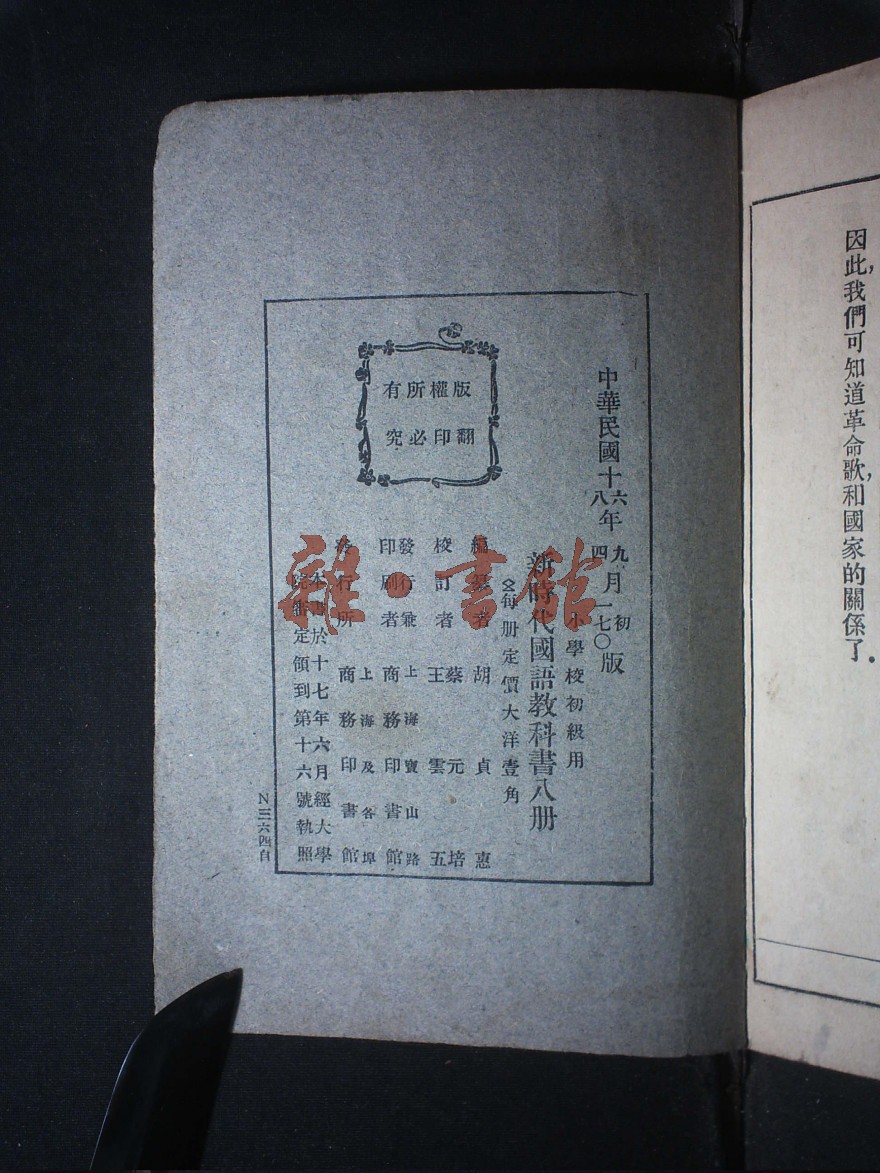 因此,我們可知道革命歌,和國家的關係了.
中華民國十六年九月初版
八 四 一七〇
小學校初級用
新時代國語教科書八册
每册定價大洋壹角
編纂者 胡貞惠
校訂者 蔡元培
王雲五
發行兼印刷者 上海寶山路
商務印書館
上海及各埠
發行所 商務印書館
本書於十七年六月經大學
院審定領到第十六號執照
版權所有
翻印必究
N三六四自
雜·書館